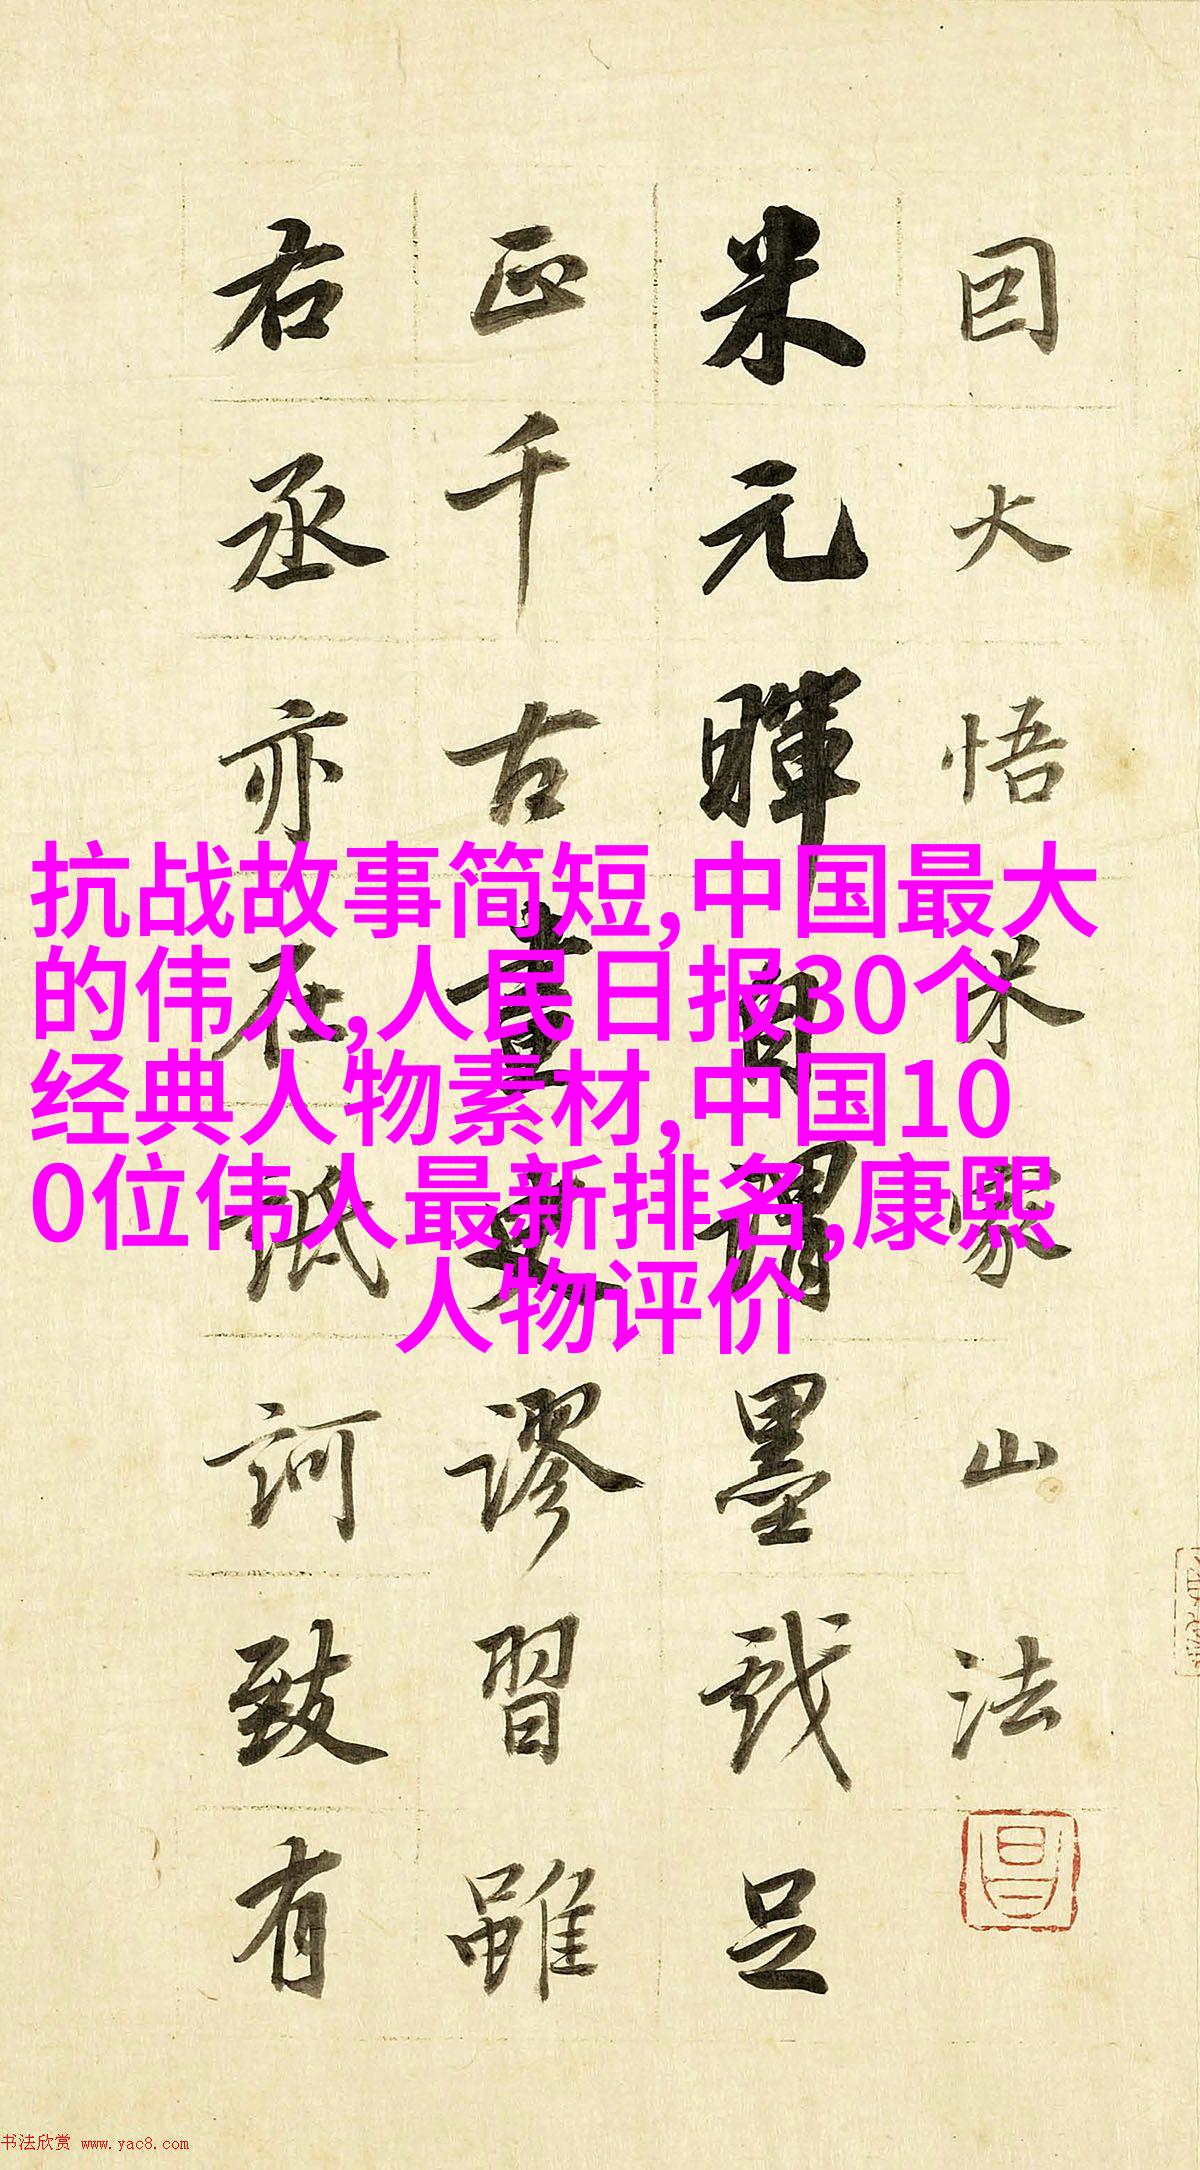 囙大悟米家山法
米元暉自謂墨戲足
正千古畫史謬習雖
右丞亦在詆訶致有
抗战故事简短,中国最大
的伟人,人民日报30个
经典人物素材,中国10
0位伟人最新排名,康熙
人物评价
书法欣赏 www.yac8.com